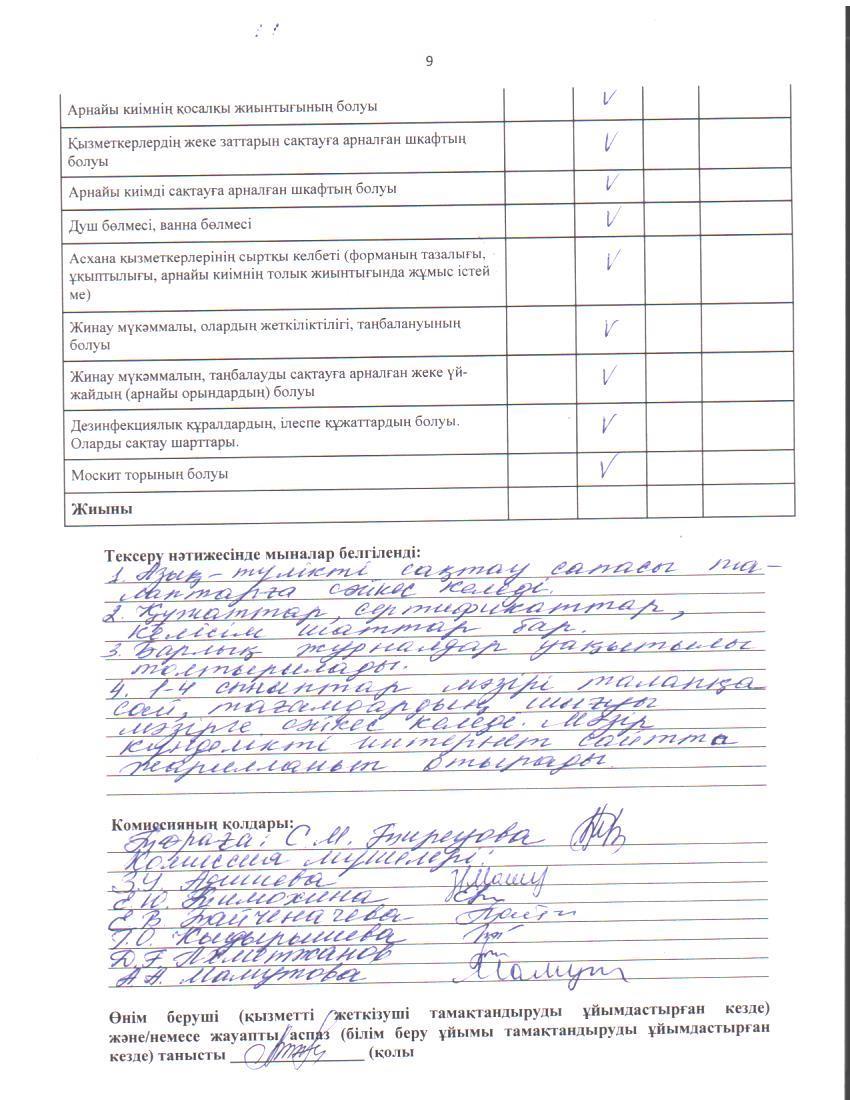 9
Арнайы киімнің қосалқы жиынтығының болуы
Қызметкерлердің жеке заттарын сақтауға арналған шкафтың
болуы
Арнайы киімді сақтауға арналған шкафтың болуы
Душ бөлмесі, ванна бөлмесі
Асхана қызметкерлерінің сыртқы келбеті (форманың тазалығы,
ұқыптылығы, арнайы киімнің толық жиынтығында жұмыс істей
ме)
Жинау мүкәммалы, олардың жеткіліктілігі, таңбалануының
болуы
Жинау мүкәммалын, таңбалауды сақтауға арналған жеке үй-
жайдың (арнайы орындардың) болуы
Дезинфекциялық құралдардың, ілеспе құжаттардың болуы.
Оларды сақтау шарттары.
Москит торының болуы
Жиыны
Тексеру нәтижесінде мыналар белгіленді:
1. Азық-түлікті сақтау сапасы та-
лаптарға сәйкес келеді.
2. Құжаттар, сертификаттар,
келісім шаттар бар.
3. Барлық журналдар уақытылы
толтырылады.
4. 1-4 сыныптар мәзірі талапқа
сай, тағамдардың шығуы
мәзірге сәйкес келеді. Мәзір
күнделікті интернет сайтта
жарияланып отырады.
Комиссияның қолдары:
Төраға: С. М.
Комиссия мүшелері:
З.У.
Е.Ю. Тимохина
Е.В.
Г.О. Кыдырышева
Д.Ғ. Ахметжанов
А.А. Мамутова
Өнім беруші (қызметті жеткізуші тамақтандыруды ұйымдастырған кезде)
және/немесе жауапты аспаз (білім беру ұйымы тамақтандыруды ұйымдастырған
кезде) танысты (қолы